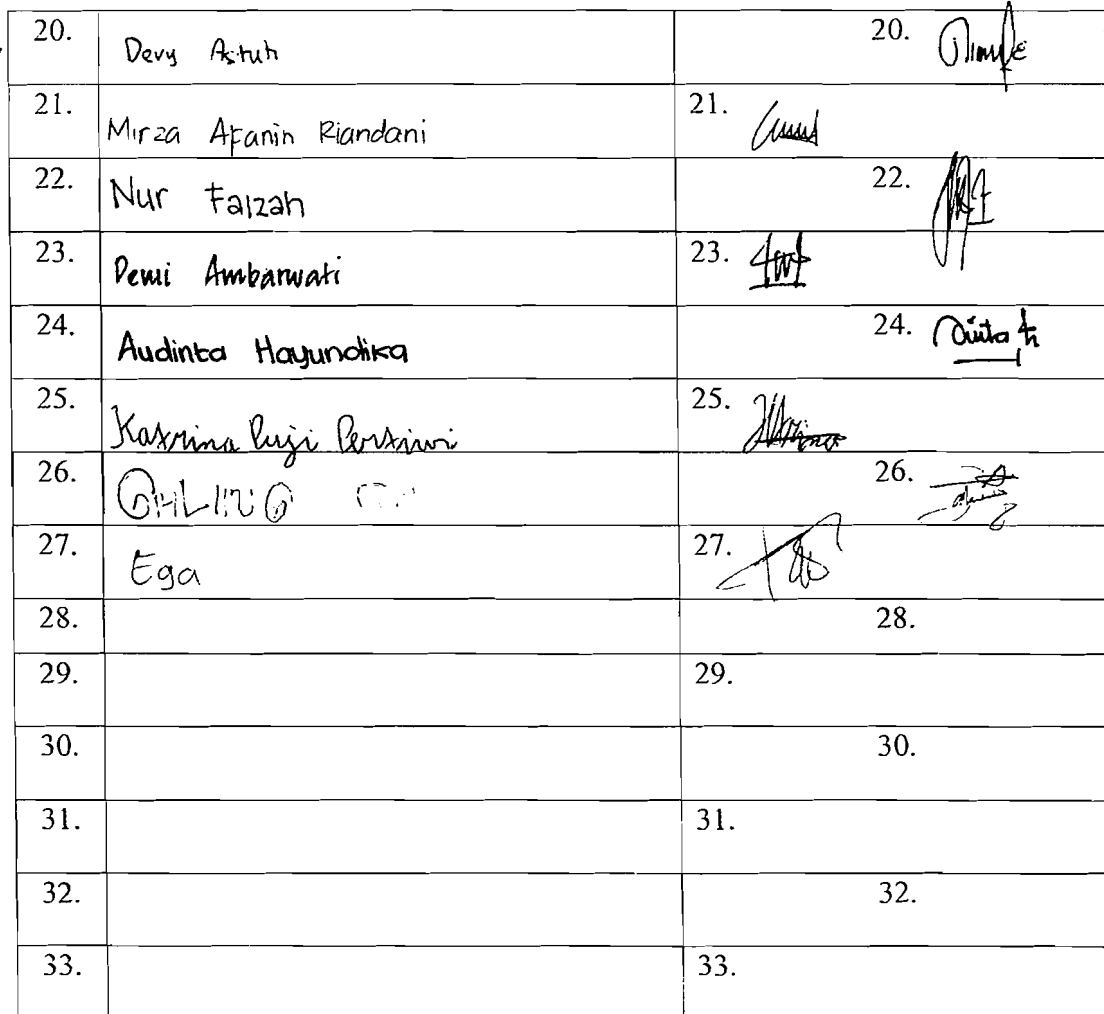 20. Devy Astuti 20.
21. Mirza Afanin Riandani 21.
22. Nur Faizah 22.
23. Dewi Ambarwati 23.
24. Audinta Hayundika 24.
25. Katrina Puji Pertiwi 25.
26. 26.
27. Ega 27.
28. 28.
29. 29.
30. 30.
31. 31.
32. 32.
33. 33.